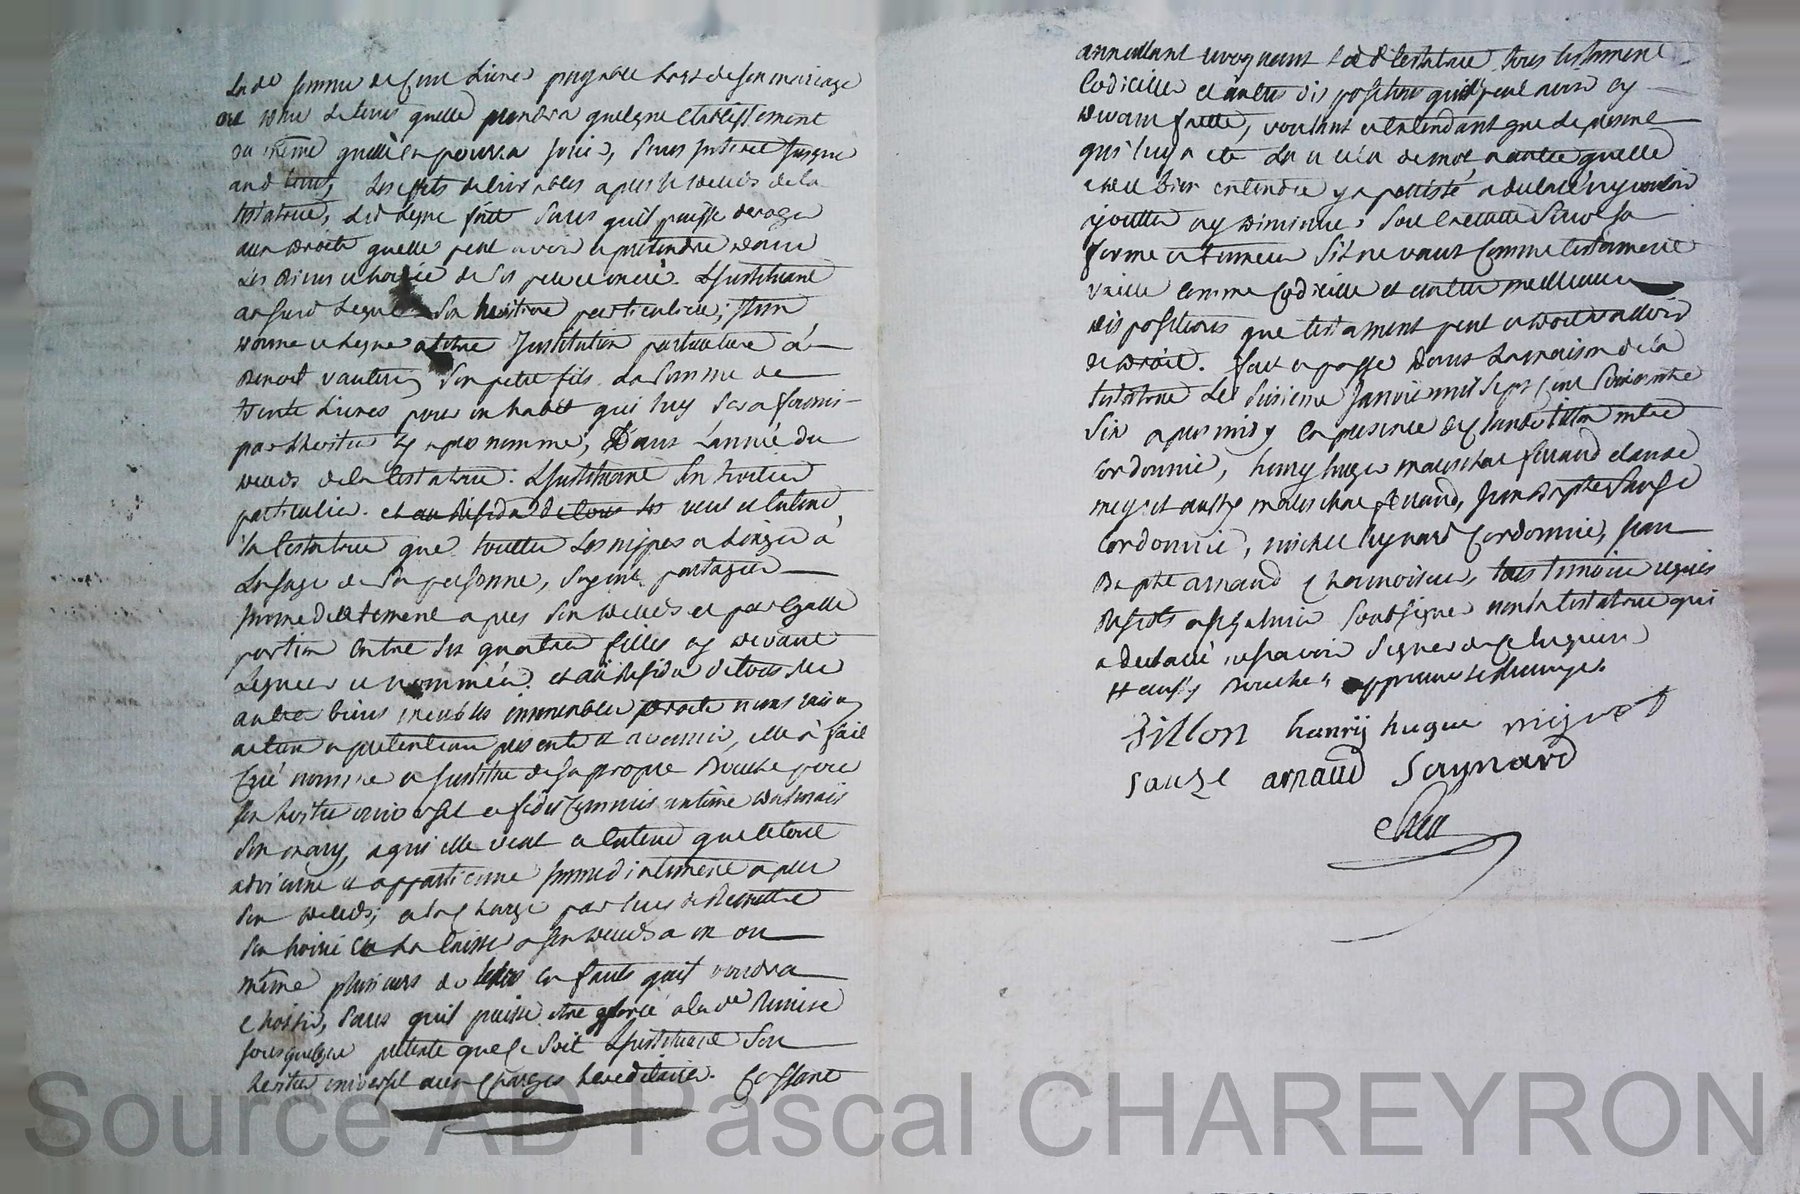 la de somme de cent livres payable lors de son mariage
ou dans le tems quelle prendra quelque etablissement
ou même quelle en pourra jouir, sans interet jusque
aud tems, les effets delivrables apres le deces de la
testatrice, led legue fait sans quil puisse deroger
aux droits quelle peut avoir a pretendre dans
les biens et hoirie de ses pere et mere. Linstituant
au surd legue son heritiere particuliere; Item
donne et legue a titre Institution particuliere à
Benoit son petit fils la somme de
trente livres pour un habit qui luy sera fourni
par lheritier cy apres nommé, Dans l'année du
deces de la testatrice. Linstituant son heritier
particulier. et au residu de tous ses veut et entend
la testatrice que touttes les nippes et linges à
lusage de sa personne, soyent partagée
Immediatement apres son deces et par Egalle
portion entre ses quattre filles cy devant
leguees et nommées. et au Residu de tous ses
autre biens meubles immeubles droits noms raison
action et pretention presents et avenir, elle à fait
Créé nommé et Institué de sa propre Bouche pour
son heritier universel et fideicommis antime
son mary, a qui elle veut et entend que le tout
advienne et appartienne Immediatement apres
son deces; et la charge par luy de Remettre
son hoirie a son deces a un ou
même plusieurs de leurs enfants quil voudra
choisir, sans quil puisse etre forcé a la de Remise
sous quelque pretexte que ce soit Linstituant Son
heritier universel aux Charges hereditaires. Cassant
annullant revoquant lad testatrice tous testament
Codicilles et autres dispositions quil peut avoir cy
devant faitte, voulant et entendant que le present
qui luy a été lu et relu de mot a autre quelle
a dit bien entendre y a persisté a declaré ny vouloir
ajoutter ny diminuer, soit executté suivant sa
forme et teneur s'il ne vaut Comme testament
vaille comme Codicille et autres meilleures
dispositions que testament peut et doit valloir
de droit. fait et passé Dans la maison de la
testatrice Le sixieme Janvier mil sept cent soixante
six apres midy en presence de Claude tillon mtre
Cordonnier, henry hugue mareschal ferrand claude
mignot aussy mareschal ferrand, Jean Baptiste Sauze
Cordonnier, michel Saynard Cordonnier, Jean
Bapte arnaud chamoiseur, tous temoins requis
soubsigné non la testatrice qui
a declaré ne scavoir signer de ce Enquise
tillon henrÿ hugue mignot
sauze arnaud Saynard